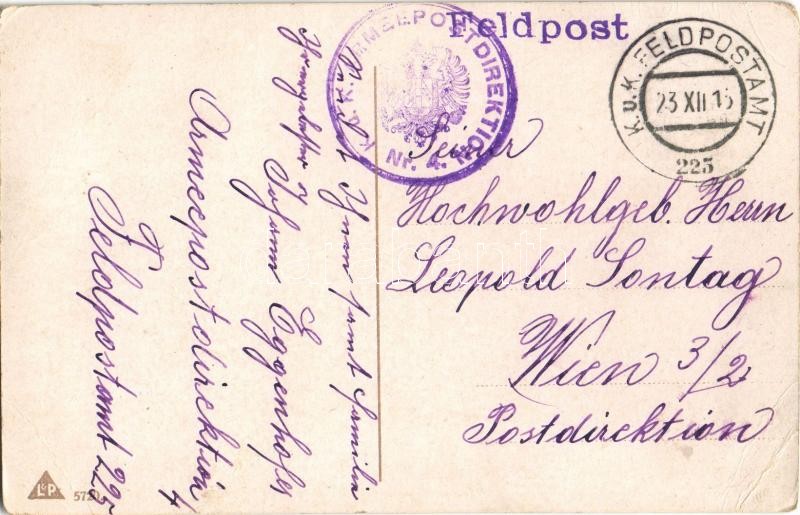 Feldpost
K. u. K. ARMEEPOSTDIREKTION
Nr. 4.
K.u.K. FELDPOSTAMT
23 XII 15
225
Seiner
Hochwohlgeb. Herrn
Leopold Sontag
Wien 3/2
Postdirektion
Ihnen samt Familie
Johann Eggenhofer
Armeepostdirektion 4
Feldpostamt 225
L&P